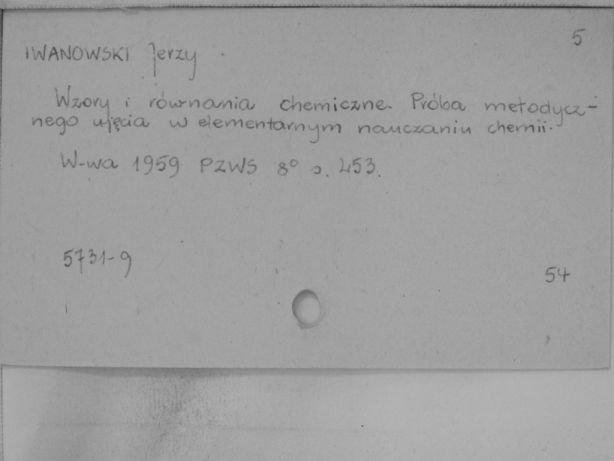 5
IWANOWSKI Jerzy
Wzory i równania chemiczne. Próba metodycz-
nego ujęcia w elementarnym nauczaniu chemii.
W-wa 1959 PZWS 8° s. 253.
5731-9
54